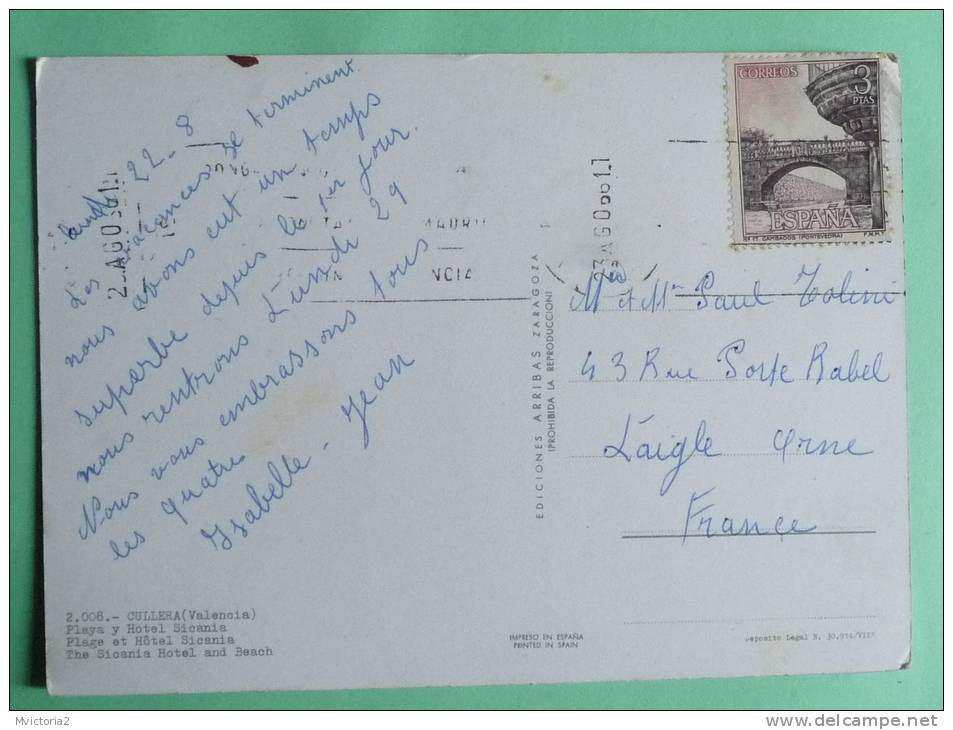 lundi 22-8
Les vacances se terminent
nous avons eut un temps
superbe depuis le 1er jour.
nous rentrons Lundi 29
Nous vous embrassons tous
les quatre
Isabelle - Jean
CORREOS
3
PTAS
ESPAÑA
CAMBADOS (PONTEVEDRA)
F.N.M.T.
23 AGO 66
Mr et Mme Paul Tolini
43 Rue Porte Rabel
L'aigle Orne
France
EDICIONES ARRIBAS ZARAGOZA
(PROHIBIDA LA REPRODUCCION)
2.006.- CULLERA(Valencia)
Playa y Hotel Sicania
Plage et Hôtel Sicania
The Sicania Hotel and Beach
IMPRESO EN ESPAÑA
PRINTED IN SPAIN
Deposito Legal B. 30.914/VII
Mvictoria2
www.delcampe.net